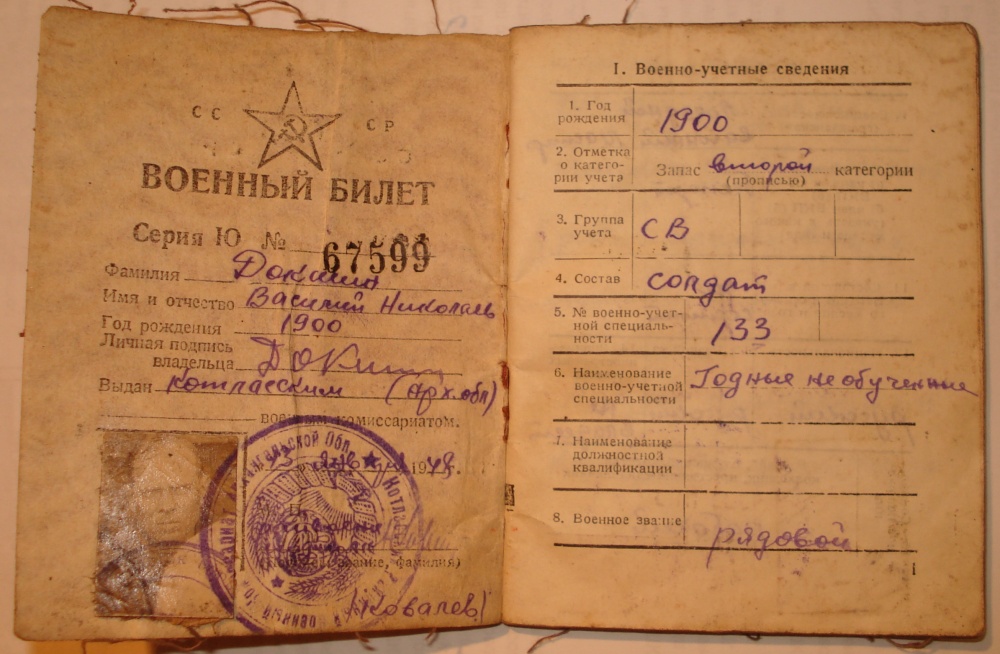 СС СР
ВОЕННЫЙ БИЛЕТ
Серия Ю № 67599
Фамилия
Имя и отчество Василий Николаев
Год рождения 1900
Личная подпись
владельца
Выдан Котласским (Арх. обл)
военным комиссариатом.
13 1948г.
звание, фамилия)
/Ковалев/
I. Военно-учетные сведения
1. Год
рождения 1900
2. Отметка
о катего-
рии учета Запас второй категории
(прописью)
3. Группа
учета СВ
4. Состав солдат
5. № военно-учет-
ной специаль-
ности 133
6. Наименование
военно-учетной
специальности Годные необученные
7. Наименование
должностной
квалификации
8. Военное звание рядовой
1